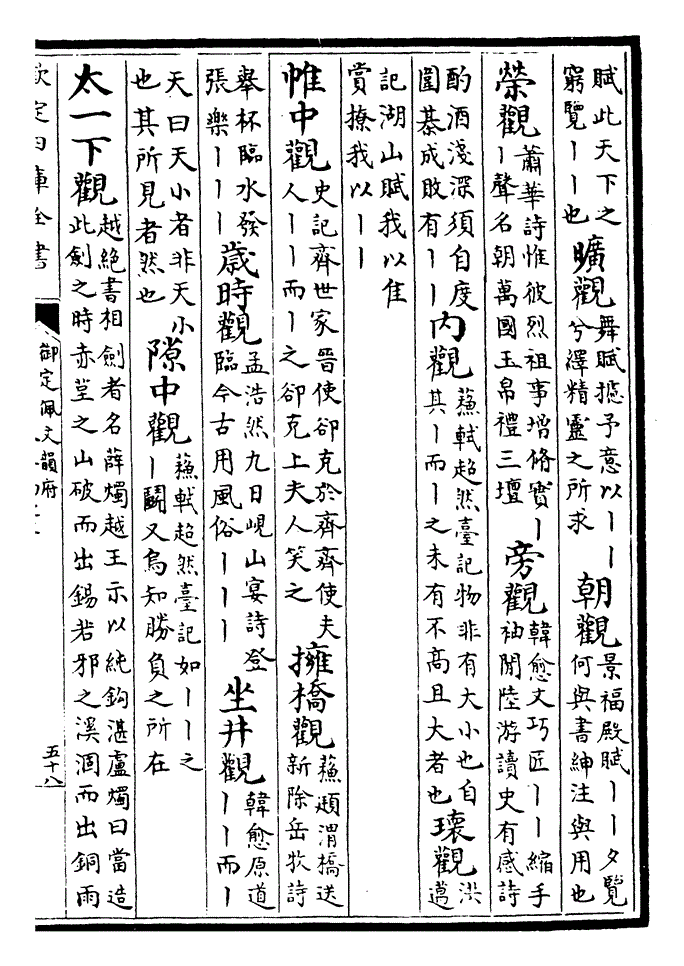 賦此天下之
窮覽丨丨也
曠觀
舞賦攄予意以丨丨
兮繹精靈之所求
朝觀
景福殿賦丨丨夕覽
何與書紳注與用也
榮觀
蕭華詩惟彼烈祖事增脩實丨
丨聲名朝萬國玉帛禮三壇
旁觀
韓愈文巧匠丨丨縮手
袖閒陸游讀史有感詩
酌酒淺深須自度
圍棊成敗有丨丨
内觀
蘇軾超然臺記物非有大小也自
其丨而丨之未有不高且大者也
瓌觀
洪
邁
記湖山賦我以隹
賞撩我以丨丨
帷中觀
史記齊世家晉使卻克於齊齊使夫
人丨丨而丨之卻克上夫人笑之
擁橋觀
蘇頲渭橋送
新除岳牧詩
舉杯臨水發
張樂丨丨丨
歲時觀
孟浩然九日峴山宴詩登
臨今古用風俗丨丨丨
坐井觀
韓愈原道
丨丨而丨
天曰天小者非天小
也其所見者然也
隙中觀
蘇軾超然臺記如丨丨之
丨鬭又烏知勝負之所在
太一下觀
越絶書相劍者名薛燭越王示以純鈎湛盧燭曰當造
此劍之時赤堇之山破而出錫若邪之溪涸而出銅雨
欽定四庫全書
御定佩文韻府
五十八